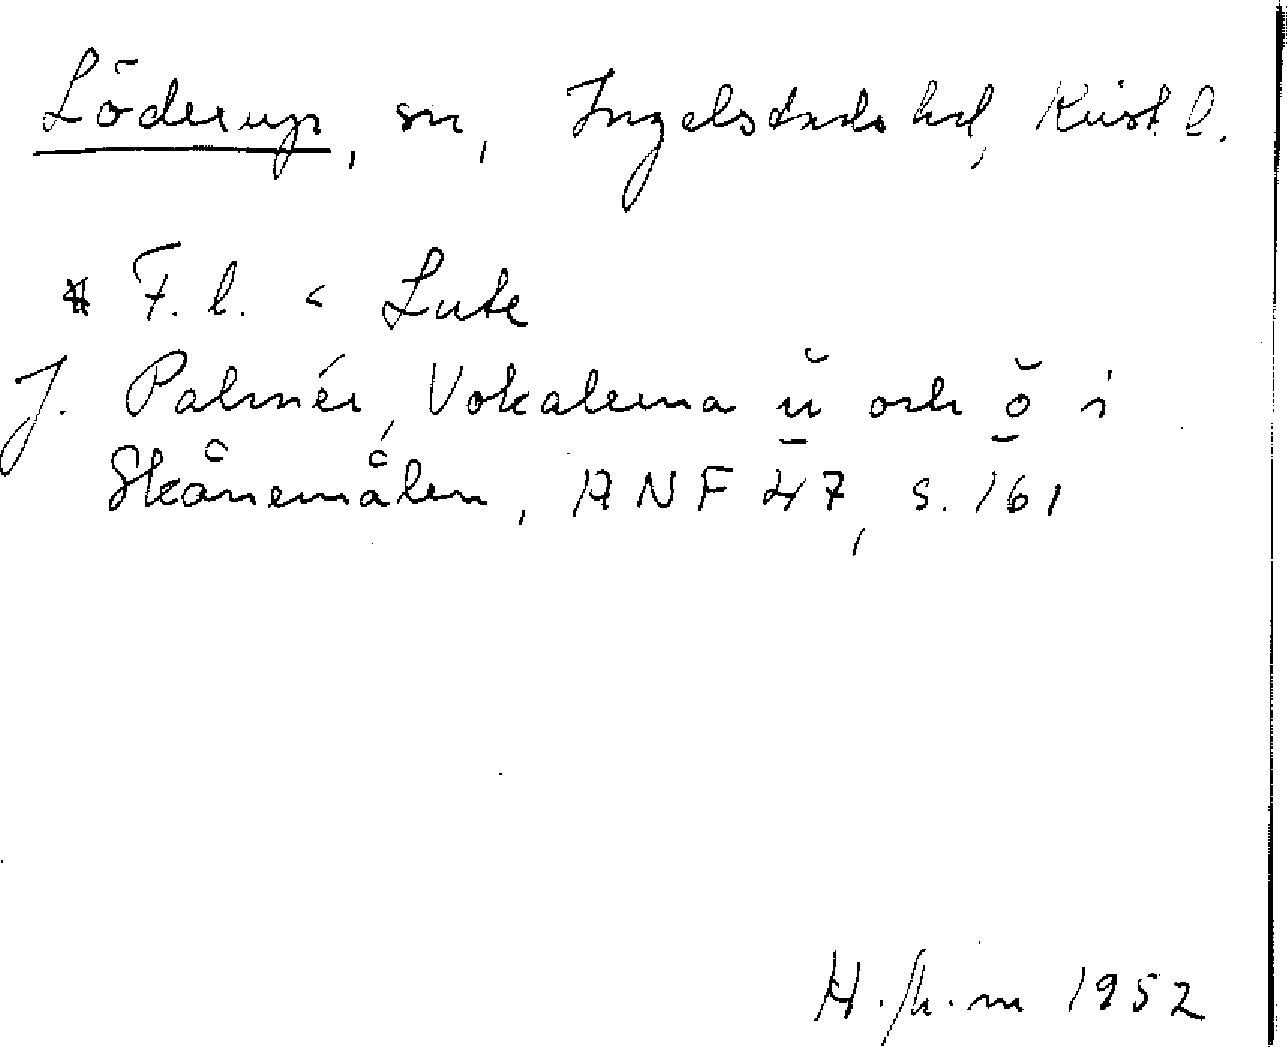 Löderup, sn, Ingelstads hd, Krist. l.
F. l. < Lute
J. Palmér, Vokalerna ŭ och ŏ i
Skånemålen, ANF 47, s. 161
1952